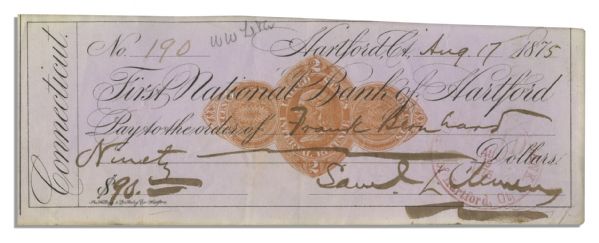 Connecticut.
No. 190 Hartford, Ct. Aug 17 1875
First National Bank of Hartford
Pay to the order of Frank
Ninety Dollars.
$90.
Saml. L. Clemens
Hartford,